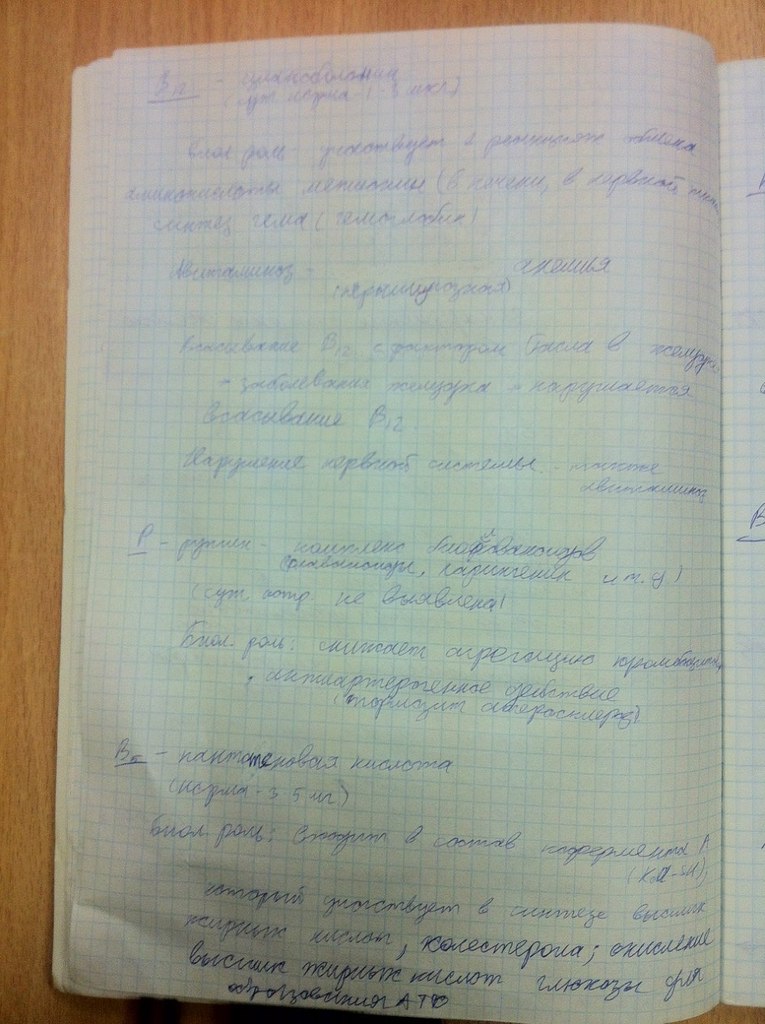 B12 - цианкобаламин
(сут. норма 1-3 мкг)
Биол. роль - участвует в реакциях обмена
аминокислоты метионин (в печени, в нервной ткани
синтез гема (гемоглобин)
Авитаминоз - анемия
(пернициозная)
Всасывание B12 с фактором Касла в желудке
- заболевания желудка - нарушается
Всасывание B12
Нарушение нервной системы - также
авитаминоз
P - рутин - комплекс биофлавоноидов
(флавоноиды, нарингенин и т.д)
(сут. потр. не выявлена)
Биол. роль: снижает агрегацию тромбоцитов,
, антиартерогенное действие
(тормозит атеросклероз)
B5 - пантотеновая кислота
(норма - 3-5 мг)
Биол. роль: входит в состав кофермента А
(КоА-SH),
который участвует в синтезе высших
жирных кислот, холестерола; окисление
высших жирных кислот глюкозы для
образования АТФ